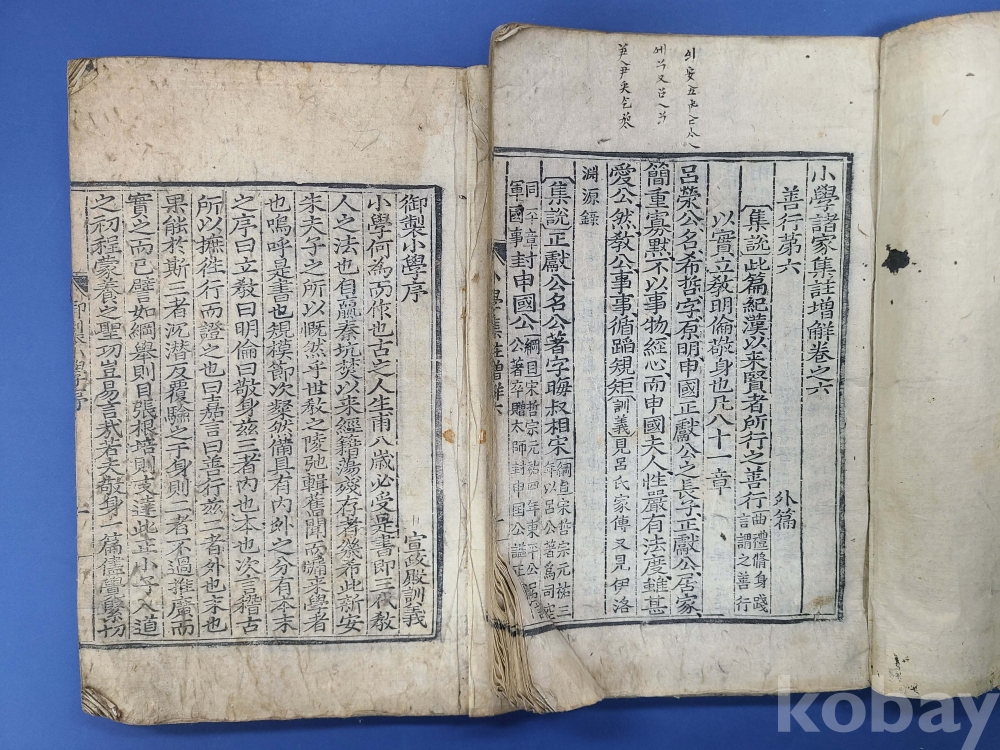 御製小學序
宣政殿訓義
小學何為而作也古之人生甫八歲必受是書即三代敎
人之法也自嬴秦坑焚以来經籍蕩殘存者幾希此新安
朱夫子之所以慨然乎世敎之陵弛輯舊聞而牖来學者
也嗚呼是書也規模節次粲然備具有內外之分有本末
之序曰立敎曰明倫曰敬身兹三者內也本也次言稽古
所以摭徃行而證之也曰嘉言曰善行兹二者外也末也
果能於斯三者沉潜反覆驗之于身則二者不過推廣而
實之而已譬如綱舉則目張根培則支達此正小子入道
之初程蒙養之聖功豈易言哉若夫敬身一篇儘覺緊切
御製小學序
小學諸家集註增解卷之六
外篇
善行第六
集說此篇紀漢以来賢者所行之善行曲禮脩身踐言謂之善行
以實立敎明倫敬身也凡八十一章
呂滎公名希哲字原明申國正獻公之長子正獻公居家
簡重寡默不以事物經心而申國夫人性嚴有法度雖甚
愛公然敎公事事循蹈規矩訓義見呂氏家傳又見伊洛
淵源錄
集說正獻公名公著字晦叔相宋綱目宋哲宗元祐三年以呂公著爲司空
同平章軍國事封申國公綱目宋哲宗元祐四年東平公公著卒贈太師封申国公謚正
小學集註增解六
kobay